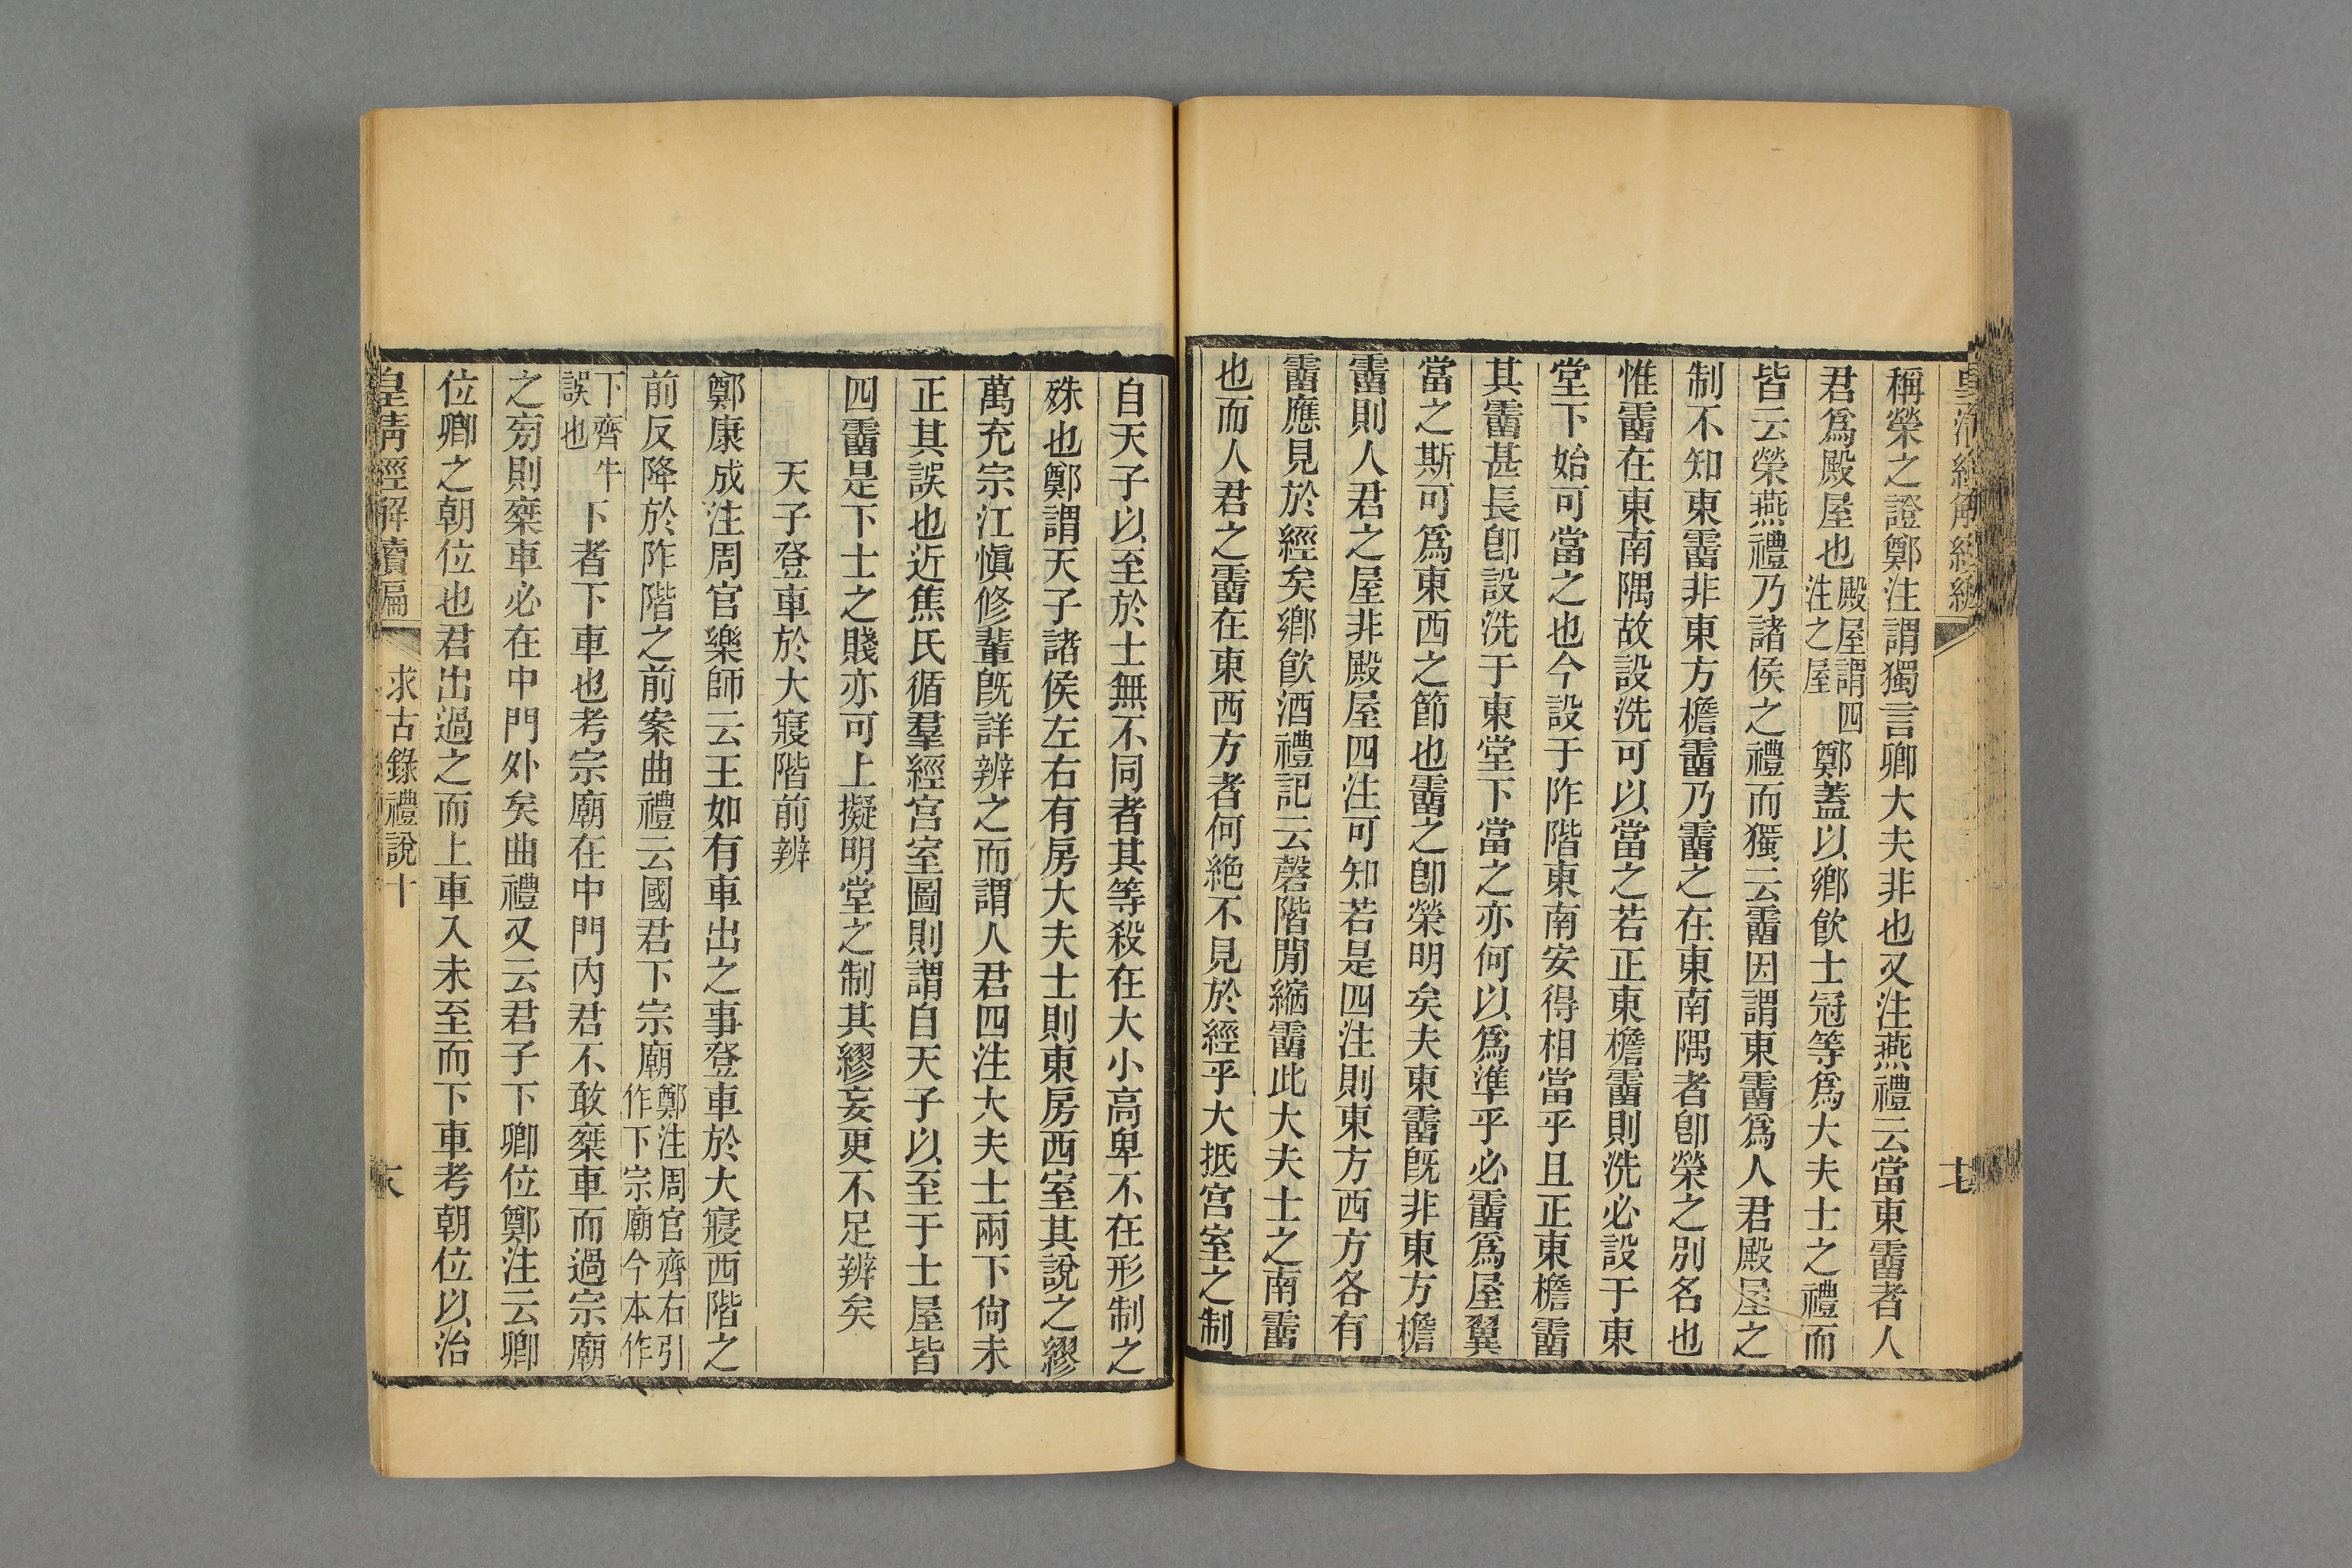 皇清經解續編
七
稱榮之證鄭注謂獨言卿大夫非也又注燕禮云當東霤者人
君爲殿屋也殿屋謂四注之屋鄭蓋以鄉飮士冠等爲大夫士之禮而
皆云榮燕禮乃諸侯之禮而獨云霤因謂東霤爲人君殿屋之
制不知東霤非東方檐霤乃霤之在東南隅者卽榮之別名也
惟霤在東南隅故設洗可以當之若正東檐霤則洗必設于東
堂下始可當之也今設于阼階東南安得相當乎且正東檐霤
其霤甚長卽設洗于東堂下當之亦何以爲準乎必霤爲屋翼
當之斯可爲東西之節也霤之卽榮明矣夫東霤旣非東方檐
霤則人君之屋非殿屋四注可知若是四注則東方西方各有
霤應見於經矣鄉飮酒禮記云磬階閒縮霤此大夫士之南霤
也而人君之霤在東西方者何絶不見於經乎大抵宮室之制
自天子以至於士無不同者其等殺在大小高卑不在形制之
殊也鄭謂天子諸侯左右有房大夫士則東房西室其說之繆
萬充宗江愼修輩旣詳辨之而謂人君四注大夫士兩下尙未
正其誤也近焦氏循羣經宮室圖則謂自天子以至于士屋皆
四霤是下士之賤亦可上擬明堂之制其繆妄更不足辨矣
天子登車於大寢階前辨
鄭康成注周官樂師云王如有車出之事登車於大寢西階之
前反降於阼階之前案曲禮云國君下宗廟鄭注周官齊右引作下宗廟今本作
下齊牛誤也下者下車也考宗廟在中門內君不敢椉車而過宗廟
之旁則椉車必在中門外矣曲禮又云君子下卿位鄭注云卿
位卿之朝位也君出過之而上車入未至而下車考朝位以治
皇清經解續編
求古錄禮說十